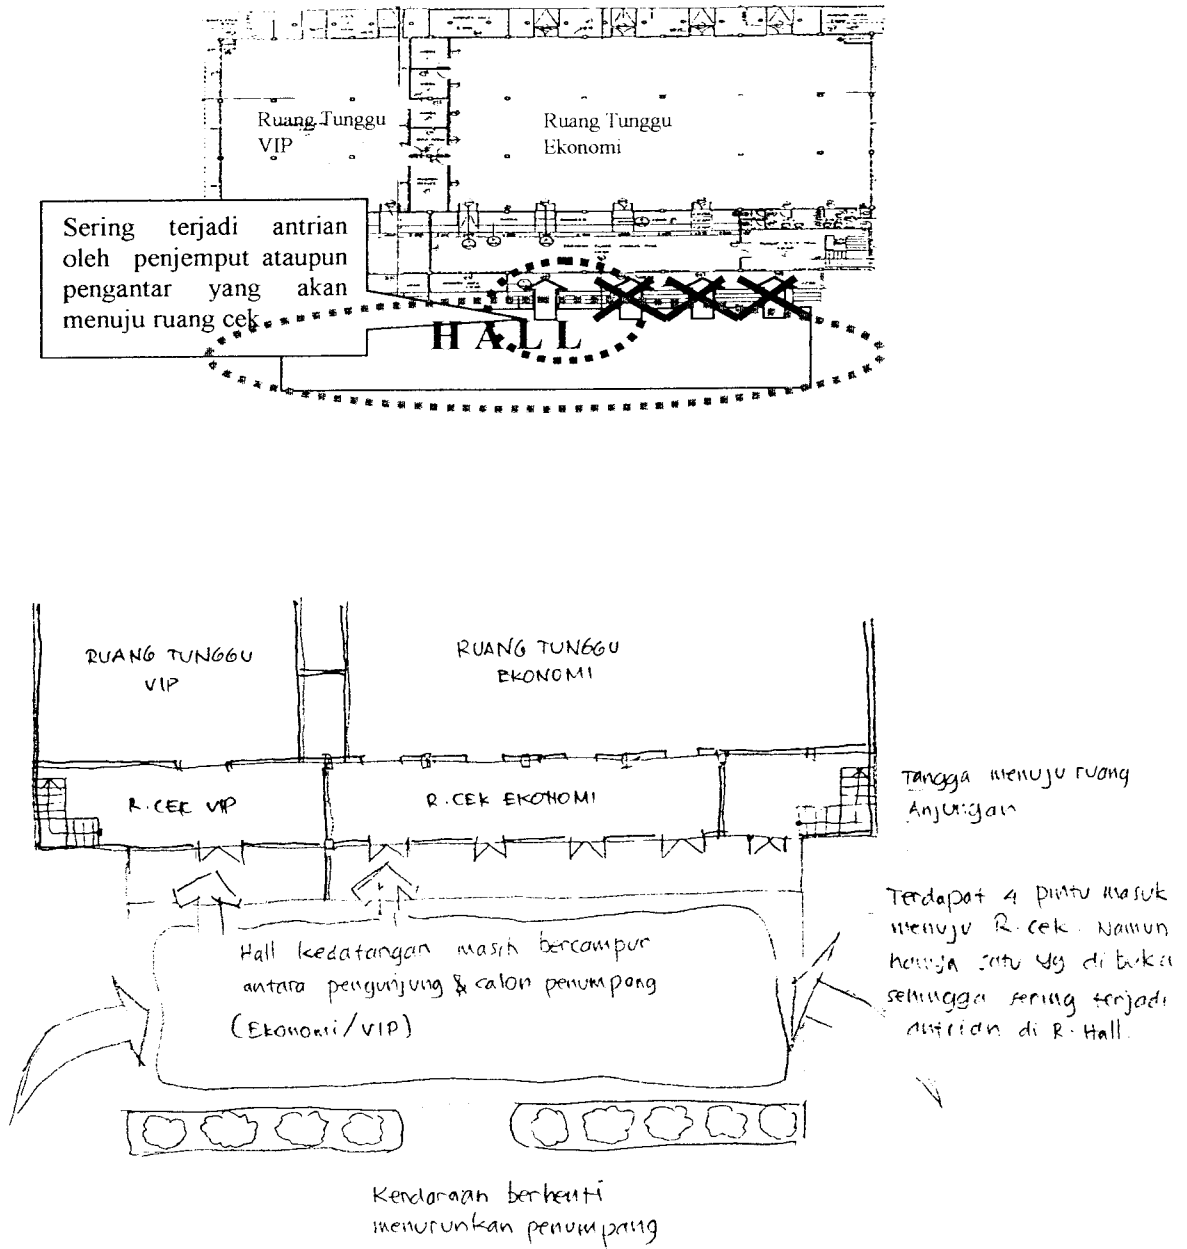 Ruang Tunggu
VIP
Ruang Tunggu
Ekonomi
Sering terjadi antrian
oleh penjemput ataupun
pengantar yang akan
menuju ruang cek
HALL
RUANG TUNGGU
VIP
RUANG TUNGGU
EKONOMI
R.CEK VIP
R.CEK EKONOMI
Tangga menuju ruang
Anjungan
Terdapat 4 pintu masuk
menuju R.cek. Namun
hanya satu yg di buka
sehingga sering terjadi
antrian di R.Hall.
Hall kedatangan masih bercampur
antara pengunjung & calon penumpang
(Ekonomi/VIP)
Kendaraan berhenti
menurunkan penumpang